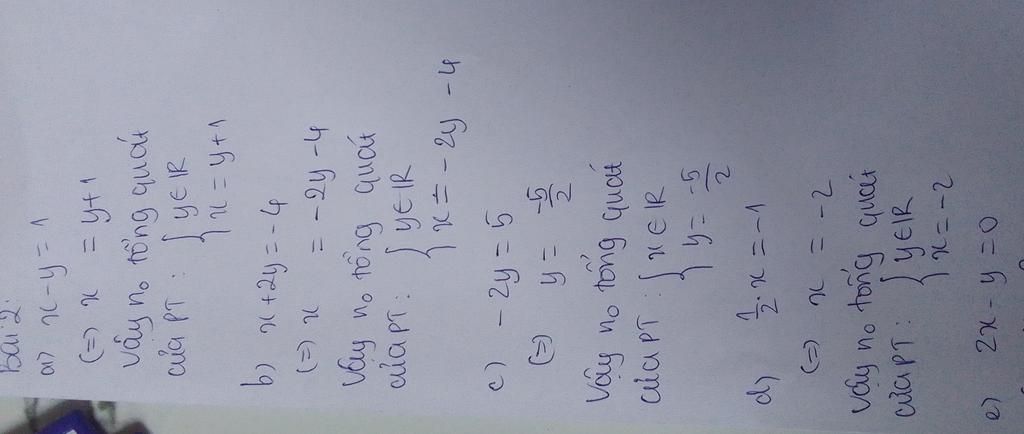 Bài 2:
a) x - y = 1
(=) x = y + 1
Vậy no tổng quát
của PT: { y ∈ IR
x = y + 1
b) x + 2y = -4
(=) x = -2y - 4
Vậy no tổng quát
của PT: { y ∈ IR
x = -2y - 4
c) - 2y = 5
(=) y = -5/2
Vậy no tổng quát
của PT: { x ∈ IR
y = -5/2
d) 1/2 . x = -1
(=) x = -2
Vậy no tổng quát
của PT: { y ∈ IR
x = -2
e) 2x - y = 0